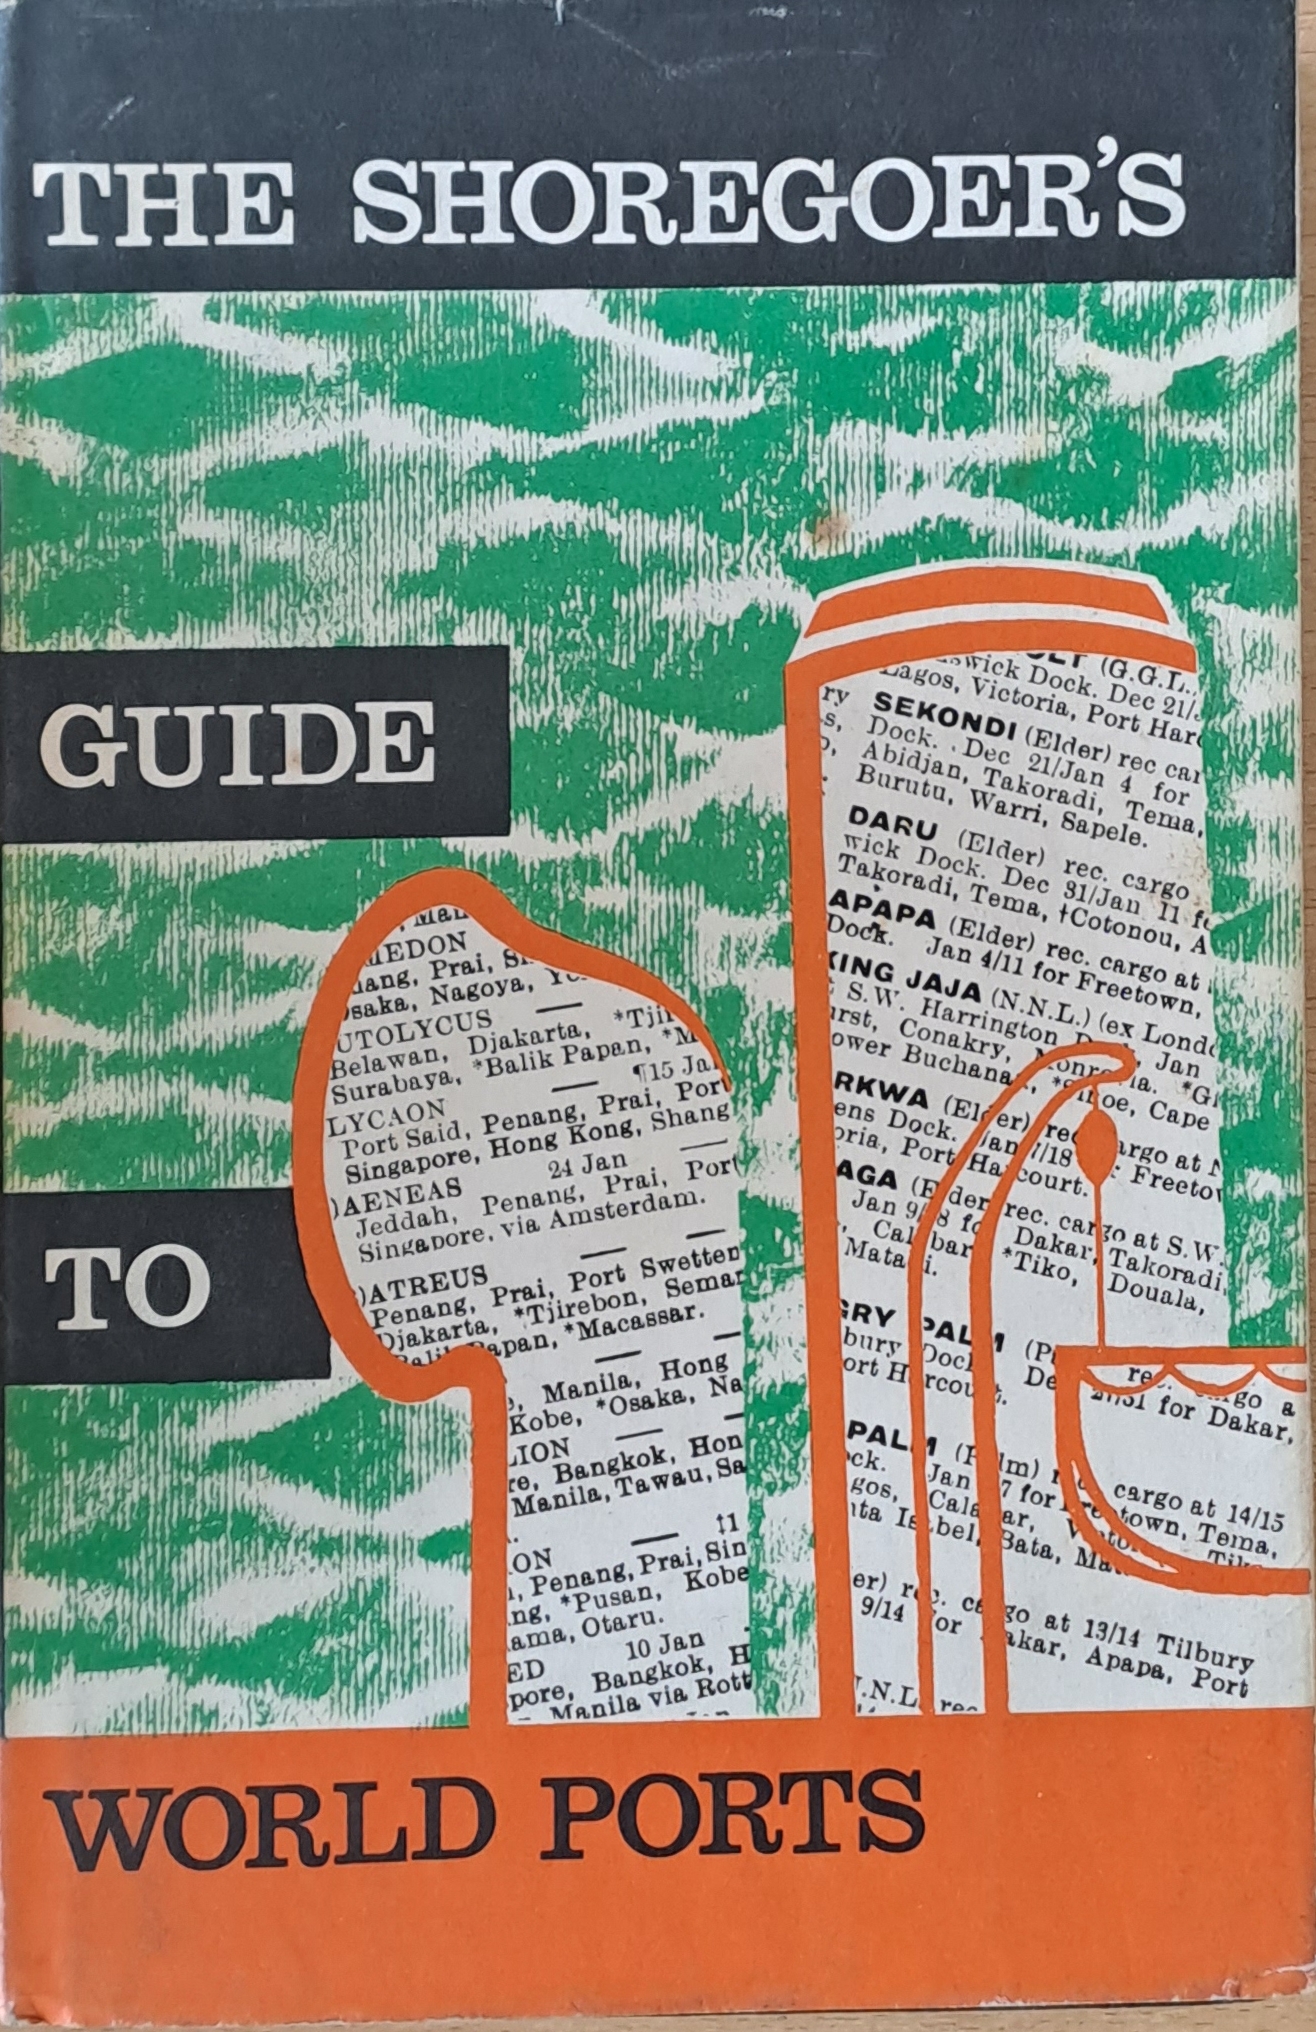 THE SHOREGOER'S
GUIDE
TO
WORLD PORTS
Prai,
Osaka, Nagoya,
UTOLYCUS —
Belawan, Djakarta,
Surabaya, *Balik Papan,
¶15
LYCAON —
Port Said, Penang, Prai, Port
Singapore, Hong Kong, Shang
24 Jan —
)AENEAS
Jeddah, Penang, Prai, Port
Singapore, via Amsterdam.
— —
)ATREUS
Penang, Prai, Port Swetten
Djakarta, *Tjirebon, Semar
Papan, *Macassar.
— —
Manila, Hong
Kobe, *Osaka, Na
— —
LION
re, Bangkok, Hon
Manila, Tawau, Sa
— ‡1
ON
, Penang, Prai, Sin
ng, *Pusan, Kobe
ama, Otaru.
10 Jan
ED
pore, Bangkok, H
Manila via Rott
(G.G.L.,
wick Dock. Dec 21/
Lagos, Victoria, Port Har
ry SEKONDI (Elder) rec car
s, Dock. Dec 21/Jan 4 for
Abidjan, Takoradi, Tema,
Burutu, Warri, Sapele.
DARU (Elder) rec. cargo
wick Dock. Dec 31/Jan 11
Takoradi, Tema, †Cotonou, A
APAPA (Elder) rec. cargo at
Dock. Jan 4/11 for Freetown,
KING JAJA (N.N.L.) (ex Lond
S.W. Harrington Jan
urst, Conakry,
ower Buchanan, Cape
RKWA (Elder) rec cargo at
ens Dock. Jan 7/18 Freetow
oria, Port Harcourt.
AGA (Elder) rec. cargo at S.W.
Jan 9/18 for Dakar, Takoradi,
Calabar *Tiko, Douala,
Matadi.
GRY PALM
bury Dock rec. cargo a
ort Harcourt. De 27/31 for Dakar,
PALM (Palm) rec. cargo at 14/15
ck. Jan 7 for Freetown, Tema,
gos, Calabar,
nta Isabel, Bata,
er) rec. cargo at 13/14 Tilbury
9/14 for Dakar, Apapa, Port
.N.L. rec